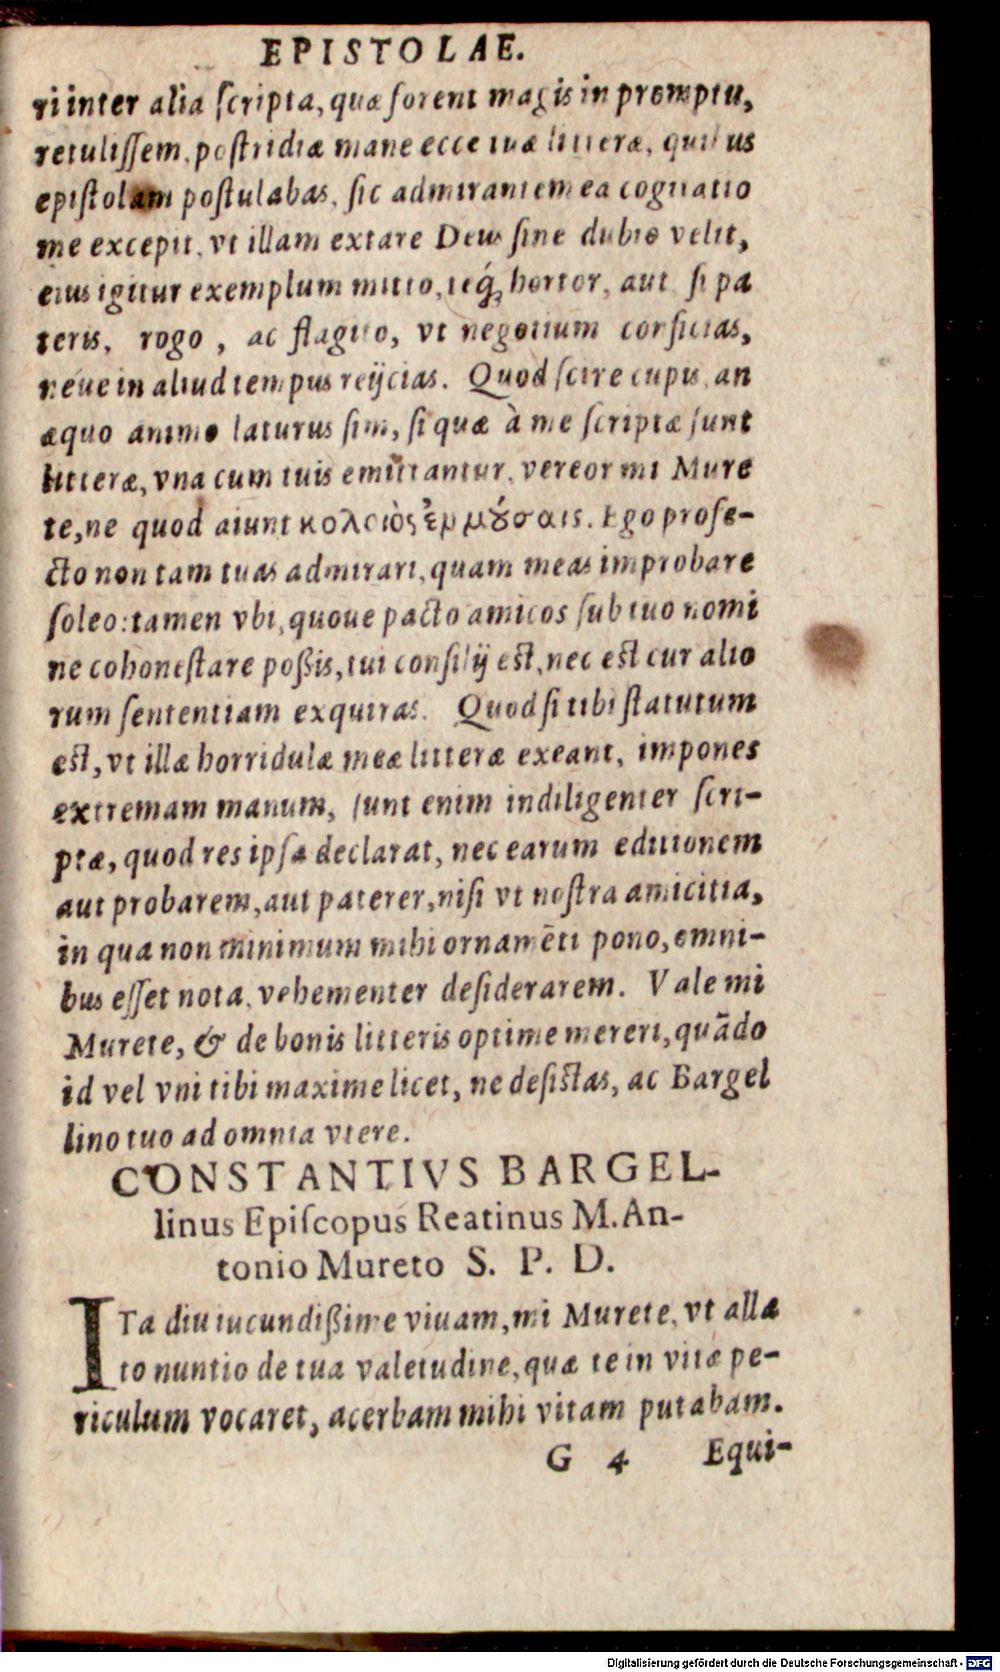 EPISTOLAE.
ri inter alia ſcripta, quæ forent magis in promptu,
retuliſſem, poſtridiæ mane ecce tuæ litteræ, quibus
epiſtolam poſtulabas, ſic admirantem ea cogitatio
me excepit, vt illam extare Deus ſine dubio velit,
eius igitur exemplum mitto, teq́; hortor, aut ſi pa
teris, rogo, ac flagito, vt negotium conficias,
neue in aliud tempus reijcias. Quod ſcire cupis, an
æquo animo laturus ſim, ſi quæ à me ſcriptæ ſunt
litteræ, vna cum tuis emittantur, vereor mi Mure
te, ne quod aiunt κολοιὸς ἐρ μȣ́σαις. Ego profe-
cto non tam tuas admirari, quam meas improbare
ſoleo: tamen vbi, quoue pacto amicos ſub tuo nomi
ne cohoneſtare poßis, tui conſilij eſt, nec eſt cur alio
rum ſententiam exquiras. Quod ſi tibi ſtatutum
eſt, vt illæ horridulæ meæ litteræ exeant, impones
extremam manum, ſunt enim indiligenter ſcri-
ptæ, quod res ipſa declarat, nec earum editionem
aut probarem, aut paterer, niſi vt noſtra amicitia,
in qua non minimum mihi ornamēti pono, omni-
bus eſſet nota, vehementer deſiderarem. Vale mi
Murete, & de bonis litteris optime mereri, quādo
id vel vni tibi maxime licet, ne deſiſtas, ac Bargel
lino tuo ad omnia vtere.
CONSTANTIVS BARGEL-
linus Epiſcopus Reatinus M. An-
tonio Mureto S. P. D.
ITa diu iucundißime viuam, mi Murete, vt allæ
to nuntio de tua valetudine, quæ te in vitæ pe-
riculum vocaret, acerbam mihi vitam putabam.
G 4 Equi-
Digitalisierung gefördert durch die Deutsche Forschungsgemeinschaft - DFG